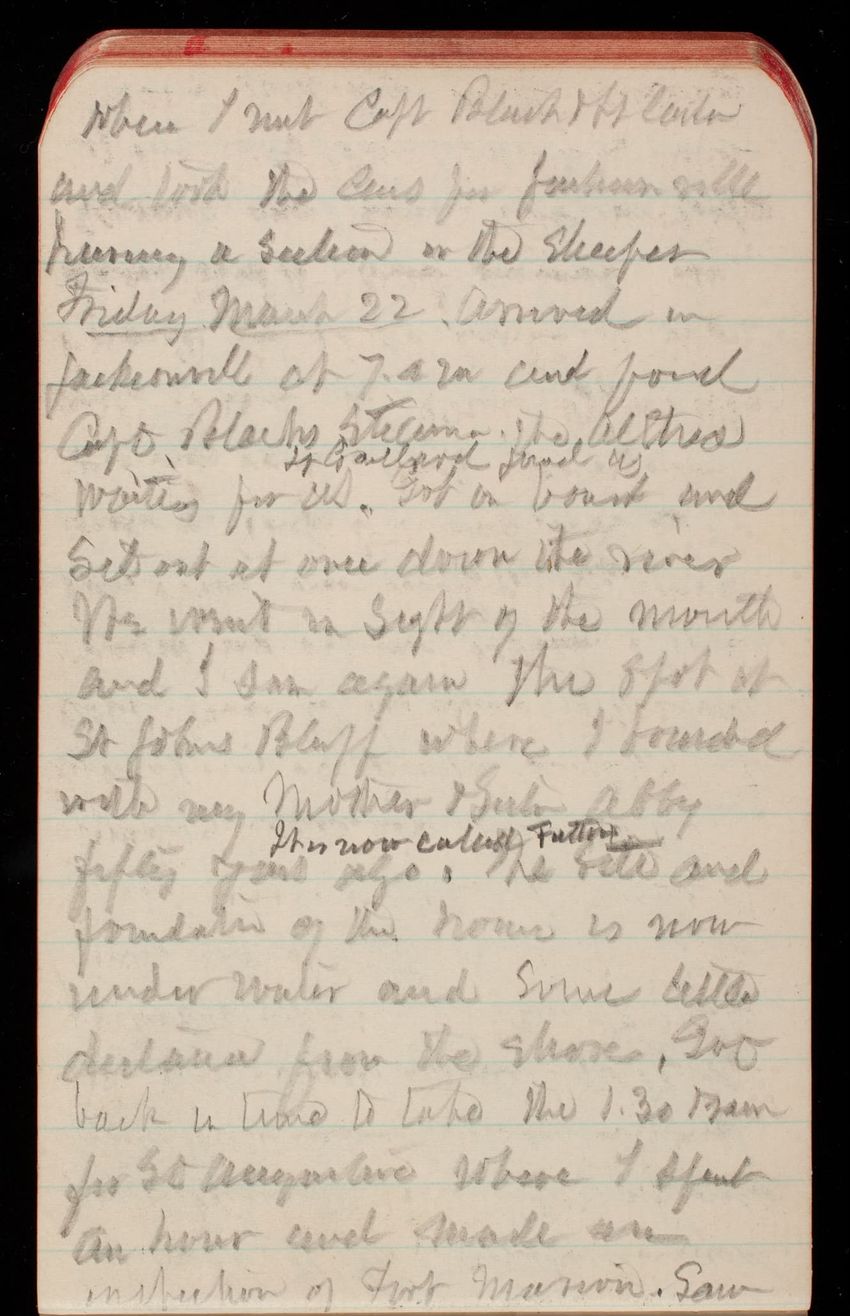 where I met Capt Black & Lt
and took the cars for Jacksonville
having a section in the sleeper
Friday March 22. Arrived in
Jacksonville at 7. a m and found
Capt Blacks Steamer. the
Lt Gaillard joined us
waiting for us. Got on board and
set out at once down the river
We went in sight of the mouth
and I saw again the spot at
St Johns Bluff where I boarded
with my Mother & Sister Abby
It is now called Fulton
fifty years ago. The site and
foundation of the house is now
under water and some little
distance from the shore. Got
back in time to take the 1.30 train
for St Augustine where I spent
an hour and made an
inspection of Fort Marion. Saw